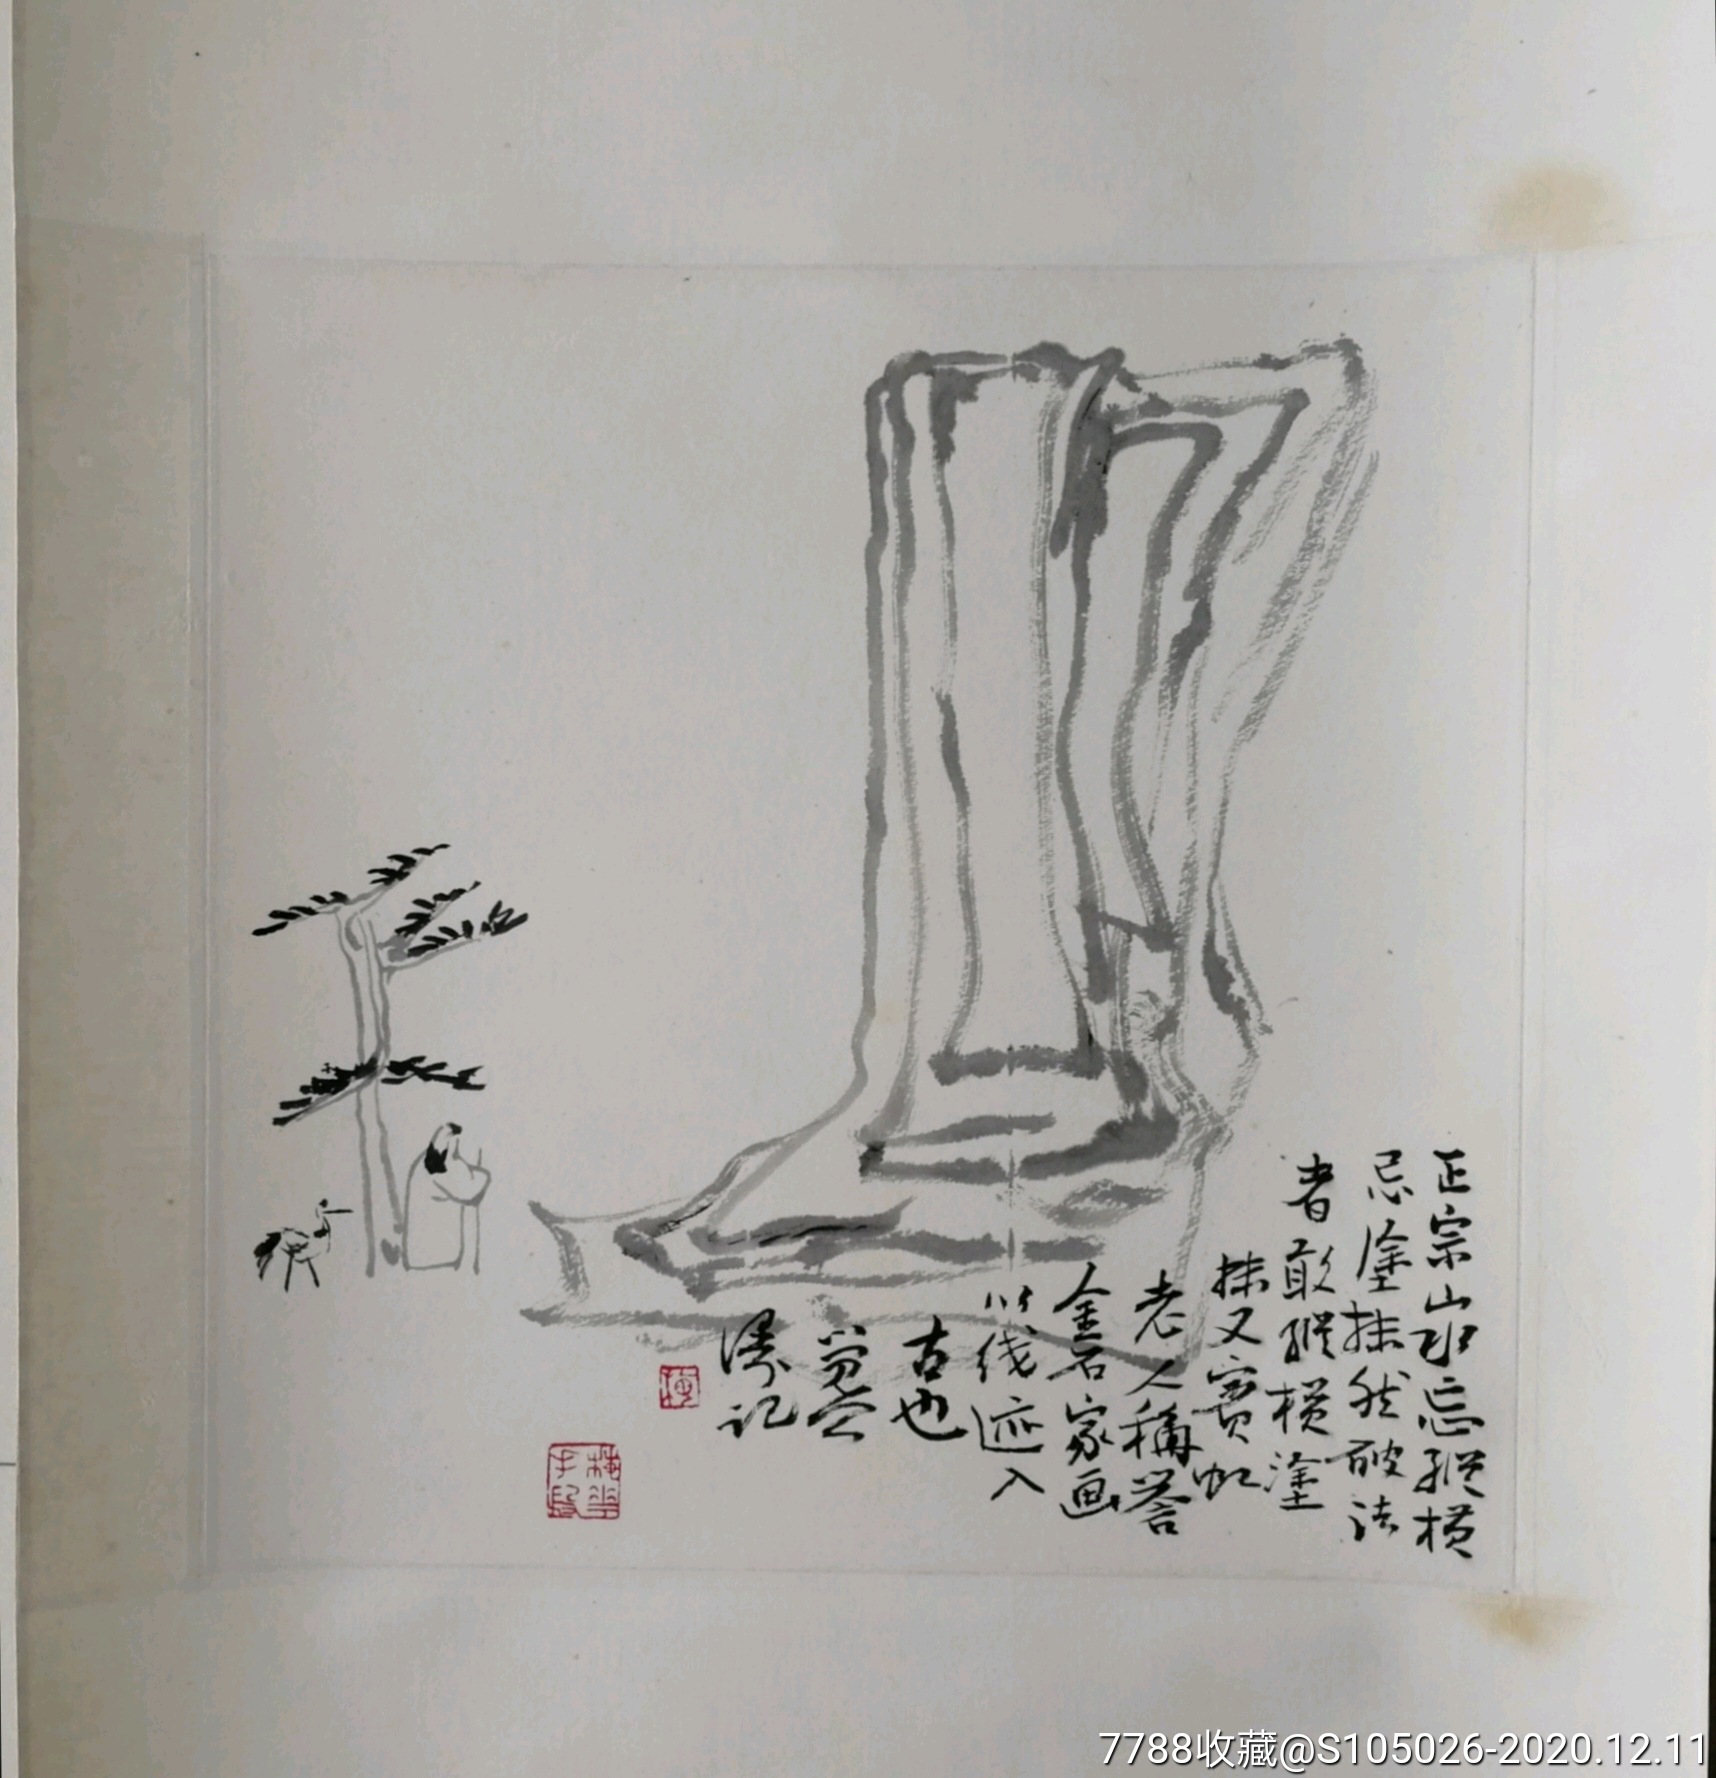 正宗山水忘纵横
忌塗抹然破法
者敢纵横塗
抹又宾虹
老人稱誉
金石家画
以线迹入
古也
记
7788收藏@S105026-2020.12.11